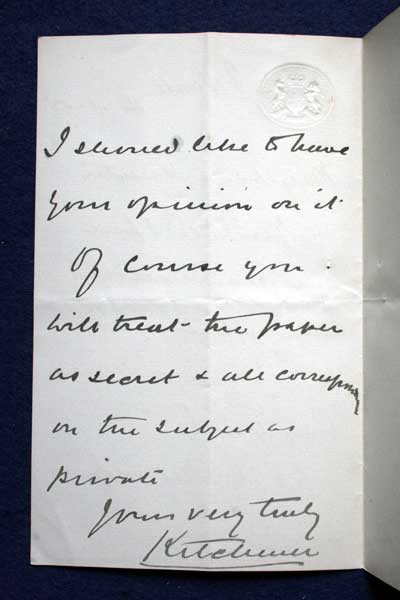 I should like to have
your opinion on it
Of course you
will treat the paper
as secret & all correspondence
on the subject as
private
Yours very truly
Kitchener